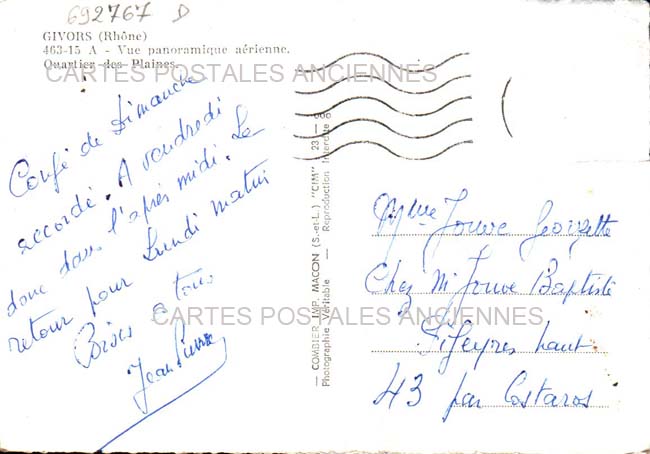 692767 D
GIVORS (Rhône)
463-15 A - Vue panoramique aérienne.
Quartier des Plaines.
CARTES POSTALES ANCIENNES
Congé de Dimanche
accordé. A vendredi
donc dans l'après midi. Le
retour pour Lundi matin
Bises a tous
Jean Pierre
— COMBIER IMP. MACON (S.-et-L.) "CIM" — 23
Photographie Véritable — Reproduction Interdite
Mme Jouve Georgette
Chez Mr Jouve Baptiste
CARTES POSTALES ANCIENNES
haut
43 par Costaros